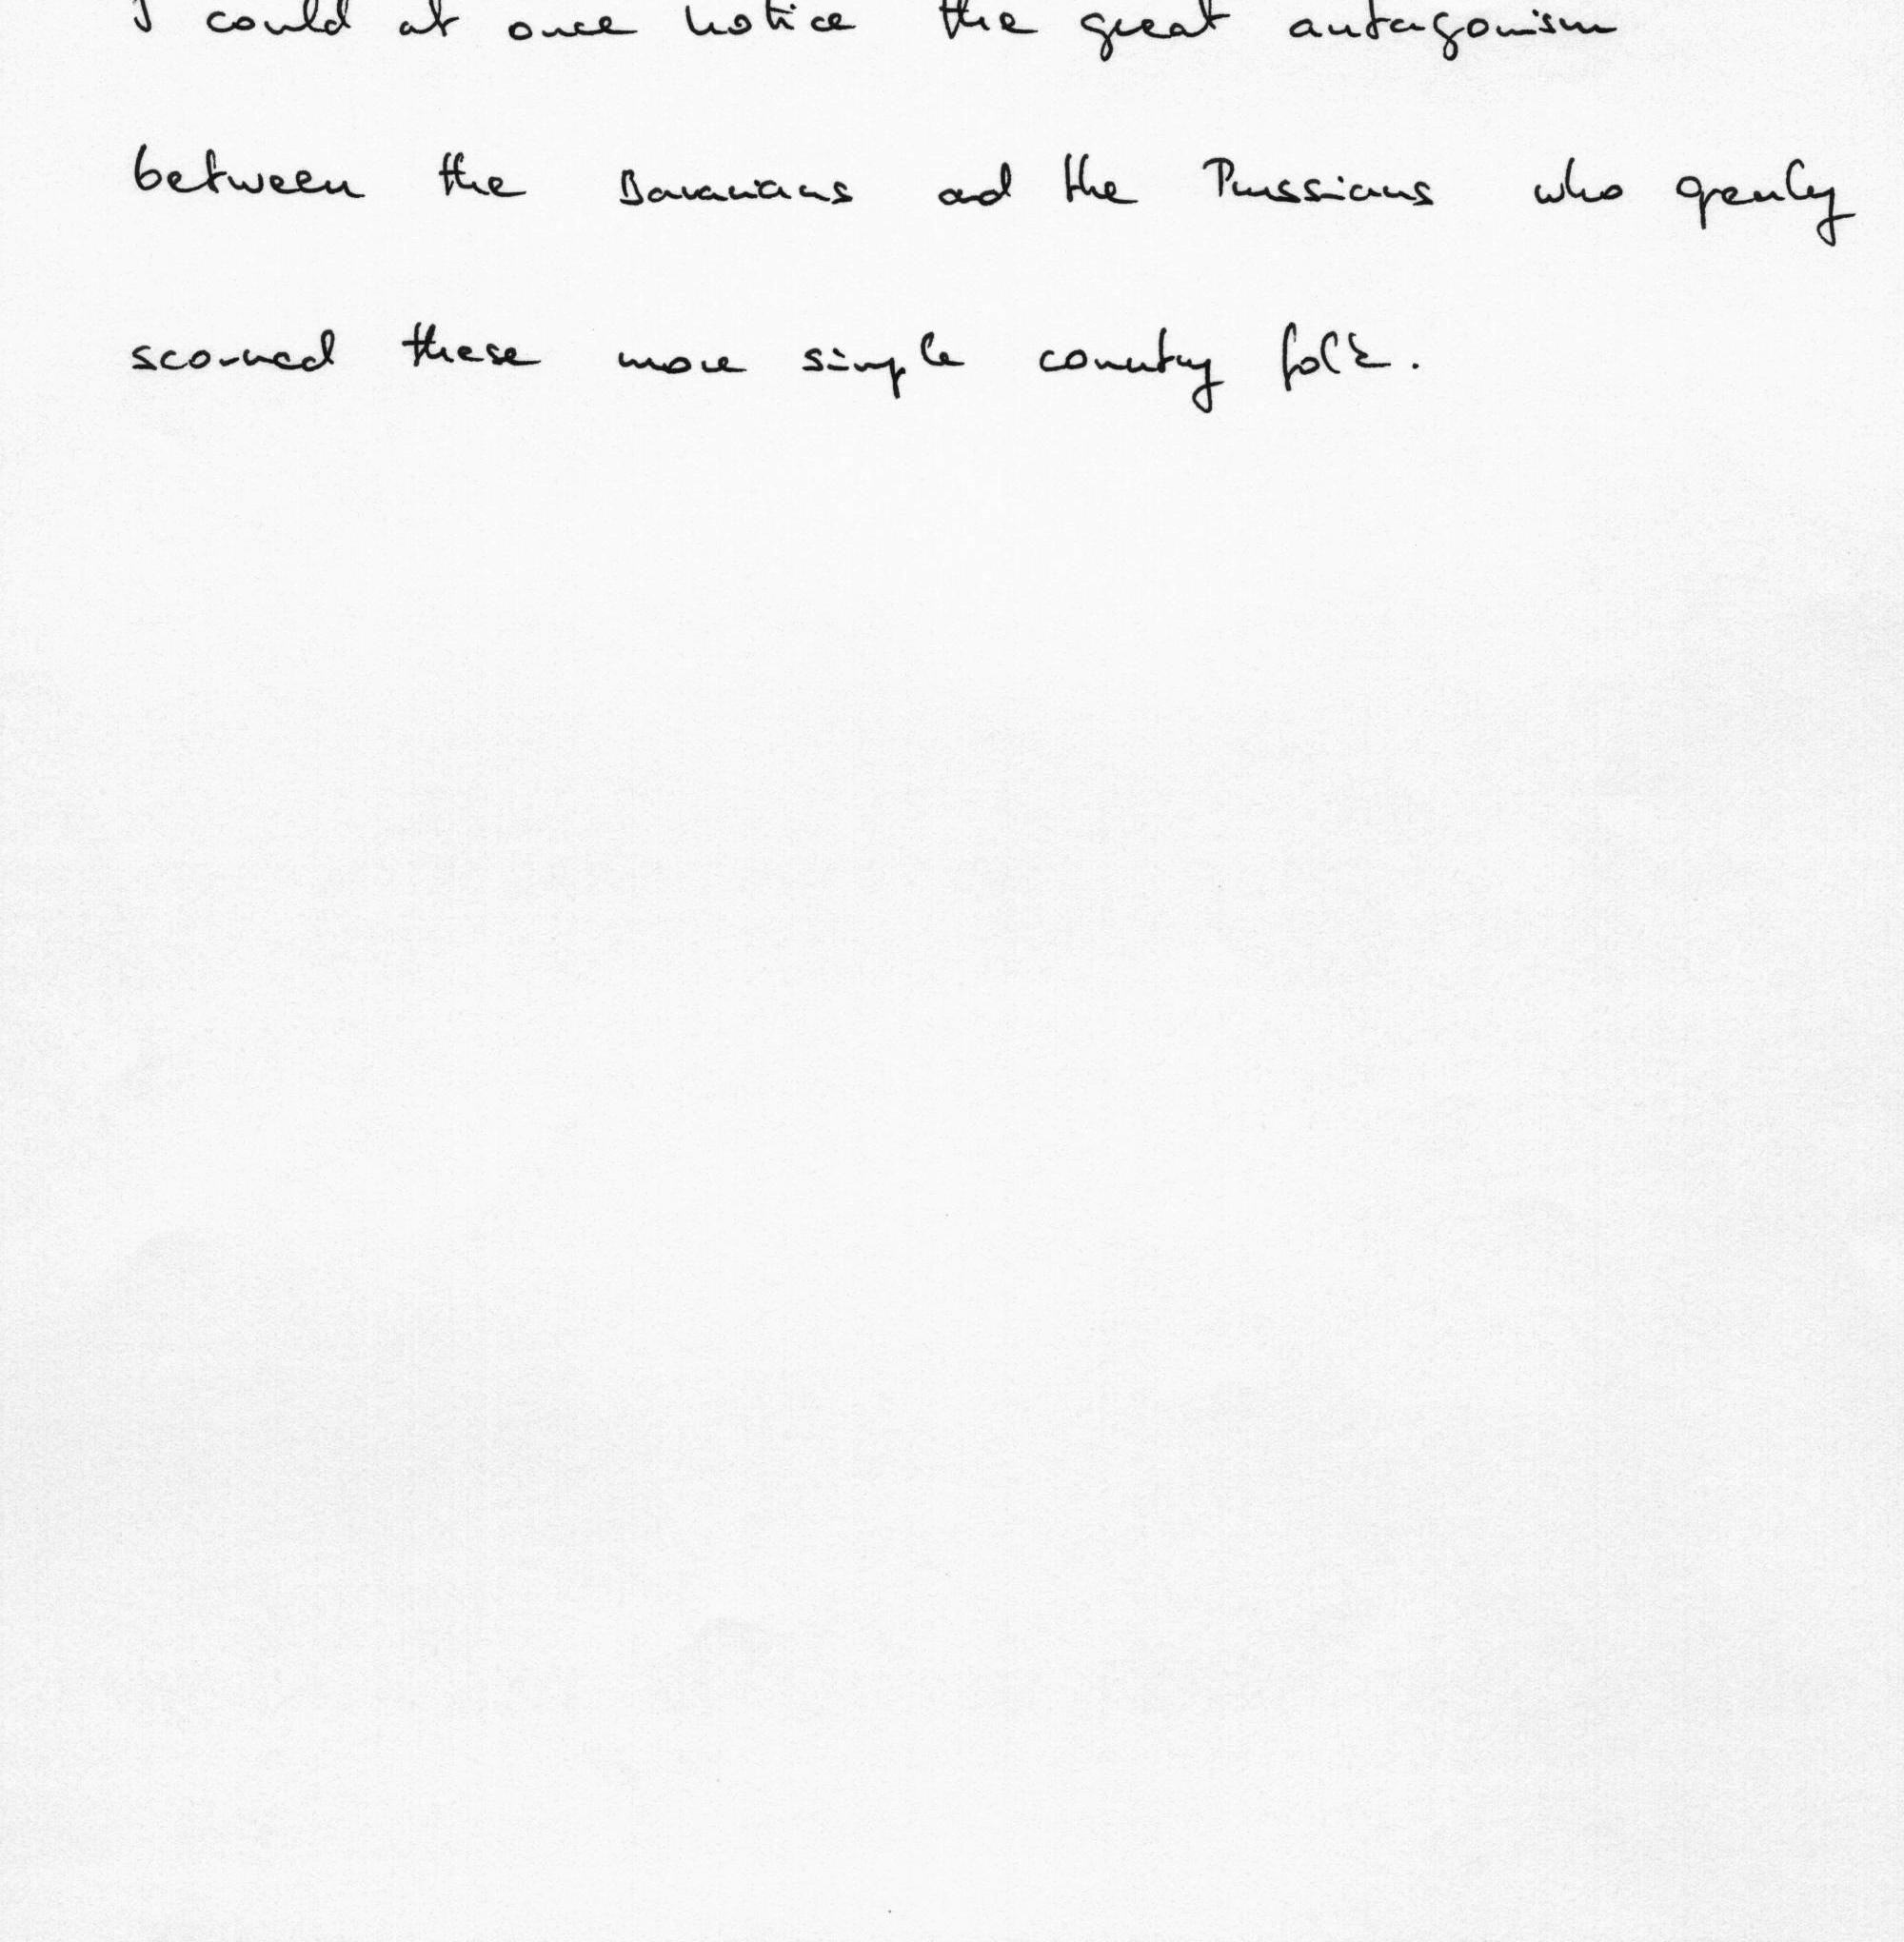 I could at once notice the great antagonism
between the Bavarians and the Prussians who openly
scorned these more simple country folk.